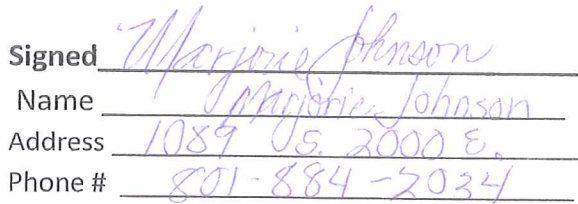 Signed Marjorie Johnson
Name Marjorie Johnson
Address 1089 S. 2000 E.
Phone # 801-884-2034